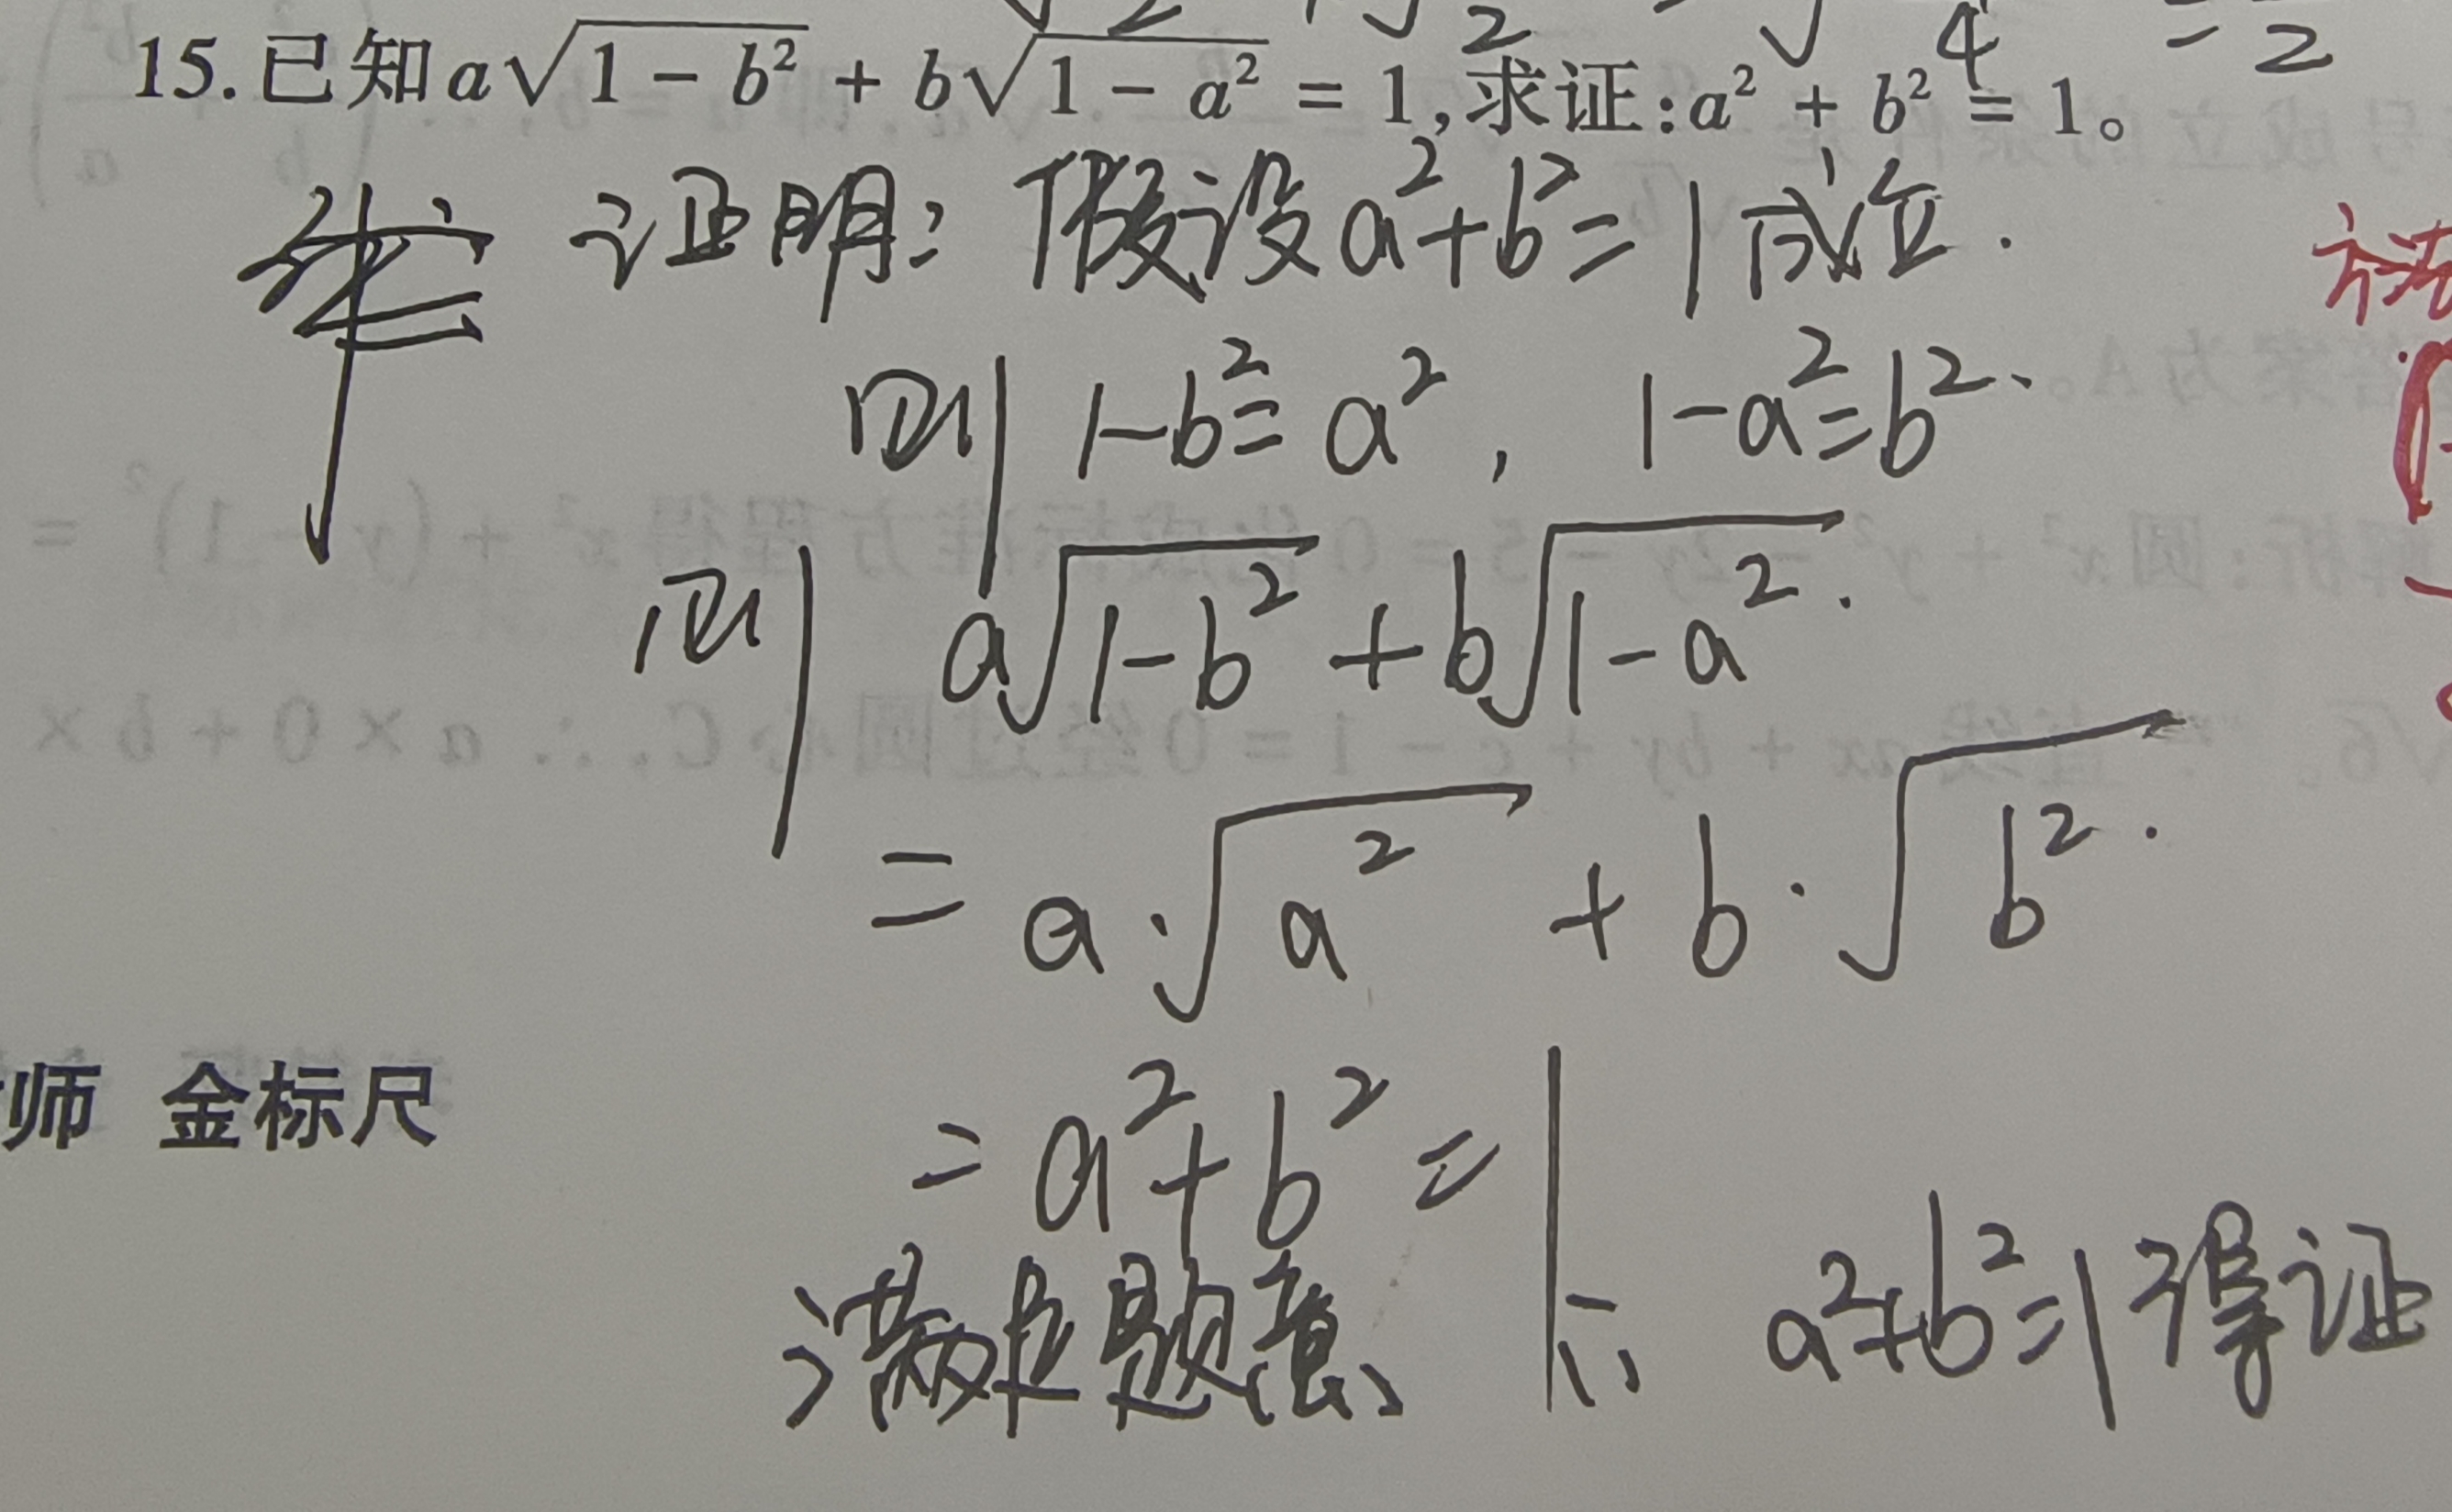 2 2 4 = 2
15. 已知a√(1 − b²) + b√(1 − a²) = 1,求证:a² + b² = 1。
证明: 假设a²+b²=1成立.
方法
则 1-b²=a², 1-a²=b².
则 a√(1-b²) + b√(1-a²).
= a·√(a²) + b·√(b²).
师 金标尺
= a²+b² = 1
满足题意、 ∴ a²+b²=1得证